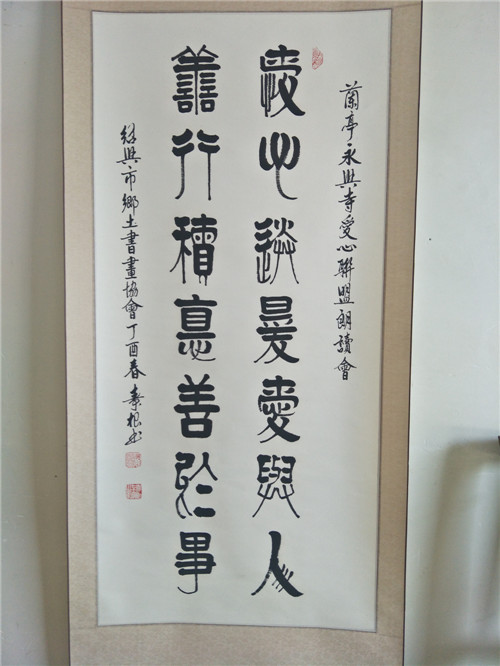 蘭亭永興寺愛心聯盟朗讀會
愛心送暖愛與人
善行積惪善於事
紹興市鄉土書畫協會丁酉春壽根书